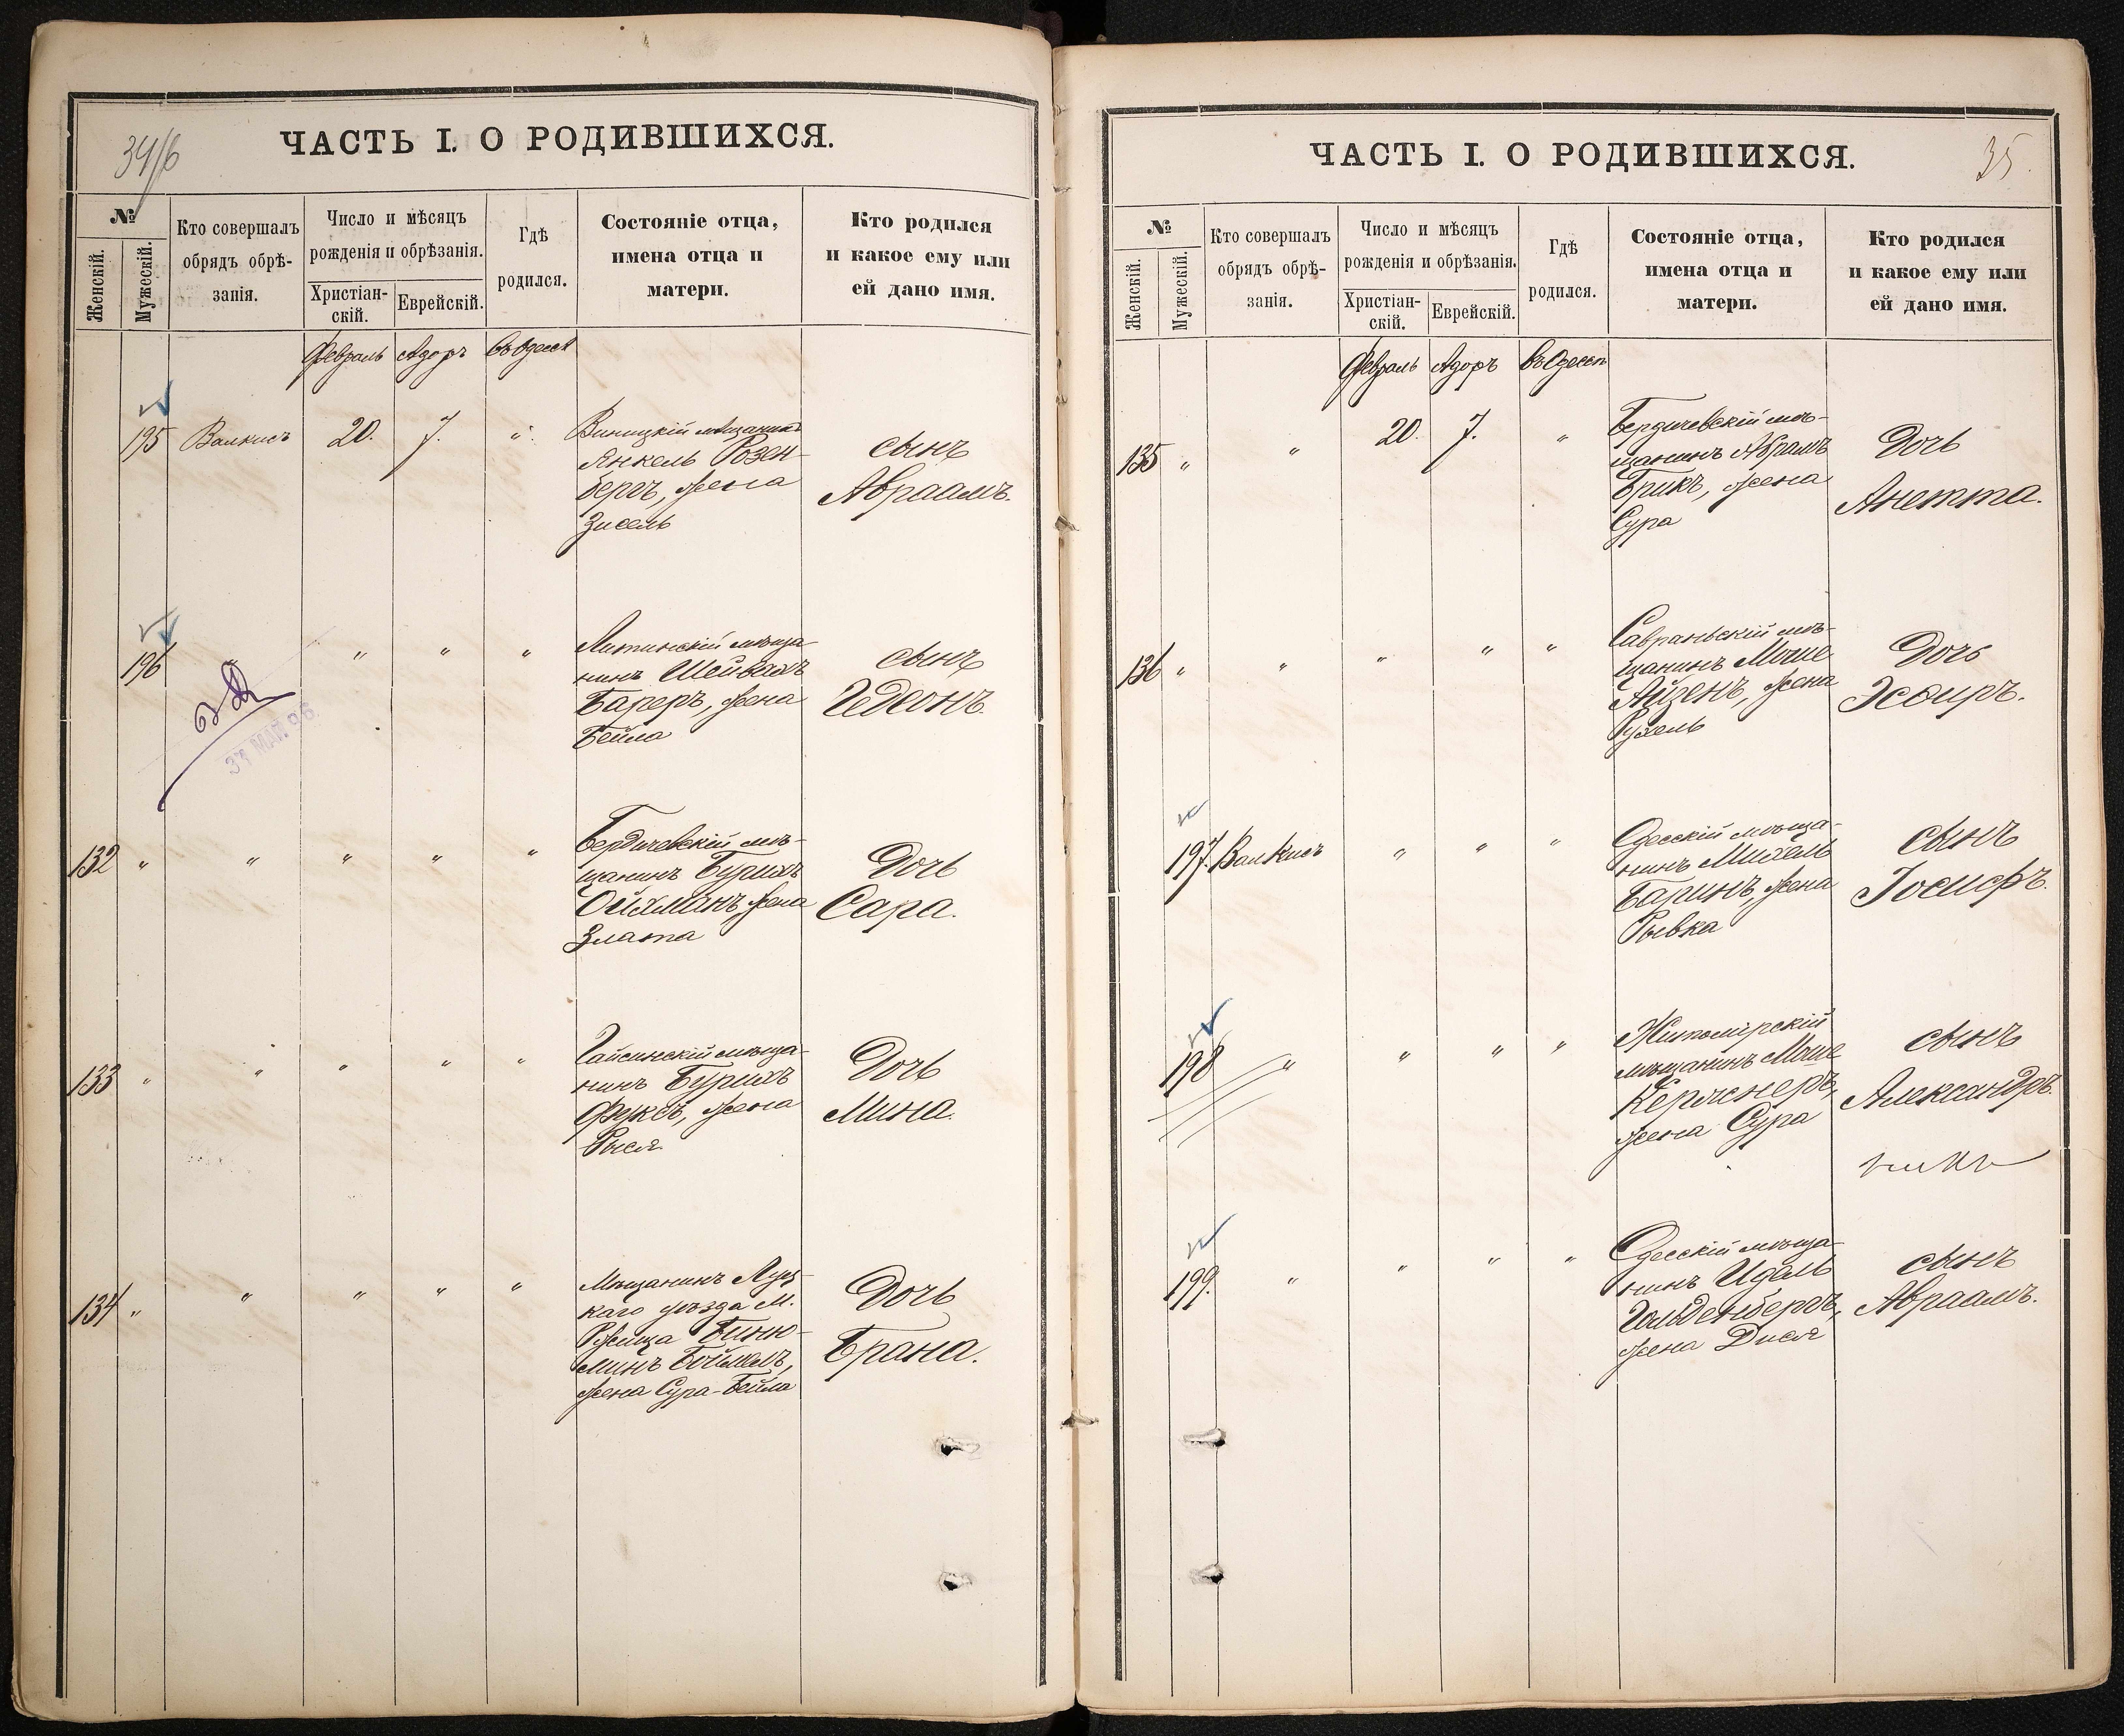 34/б
ЧАСТЬ I. О РОДИВШИХСЯ.
№
Женскій.
Мужескій.
Кто совершалъ
обрядъ обрѣ-
занія.
Число и мѣсяцъ
рожденія и обрѣзанія.
Христіан-
скій.
Еврейскій.
Гдѣ
родился.
Состояніе отца,
имена отца и
матери.
Кто родился
и какое ему или
ей дано имя.
Февраль Адоръ въ Одессѣ
195 Валкисъ 20. 7. "
Виницкій мѣщанинъ
Янкель Розен-
бергъ, жена
Зисель
сынъ
Авраамъ.
196 " " " "
Литинскій мѣща
нинъ Шейвахъ
Бареръ, жена
Бейла
сынъ
Гедеонъ.
31 МАЙ. 96
132 " " " " "
Бердичевскій мѣ-
щанинъ Бурихъ
Ойхманъ жена
Злата
Дочь
Сара.
133 " " " " "
Гайсинскій мѣща-
нинъ Бурихъ
Фуксъ, жена
Рися
Дочь
Мина.
134 " " " " "
Мѣщанинъ Луц-
каго уѣзда М.
Рожища Биню-
минъ Боймель,
жена Сура-Бейла
Дочь
Брана.
35.
ЧАСТЬ I. О РОДИВШИХСЯ.
№
Женскій.
Мужескій.
Кто совершалъ
обрядъ обрѣ-
занія.
Число и мѣсяцъ
рожденія и обрѣзанія.
Христіан-
скій.
Еврейскій.
Гдѣ
родился.
Состояніе отца,
имена отца и
матери.
Кто родился
и какое ему или
ей дано имя.
Февраль Адоръ въ Одессѣ
135 " " 20. 7. "
Бердичевскій мѣ-
щанинъ Абрамъ
Брикъ, жена
Сура
Дочь
Анетта.
136 " " " " "
Савраньскій мѣ-
щанинъ Моше
Айзенъ, жена
Рухель
Дочь
Эсѳиръ.
197. Валкисъ " " "
Одесскій мѣща-
нинъ Михель
Баринъ, жена
Рывка
сынъ
Іосифъ.
198 " " " "
Житомірскій
мѣщанинъ Моше
Керчснеръ,
жена Сура
сынъ
Александръ.
199. " " " "
Одесскій мѣща
нинъ Идель
Гольденбергъ,
жена Дися
сынъ
Авраамъ.